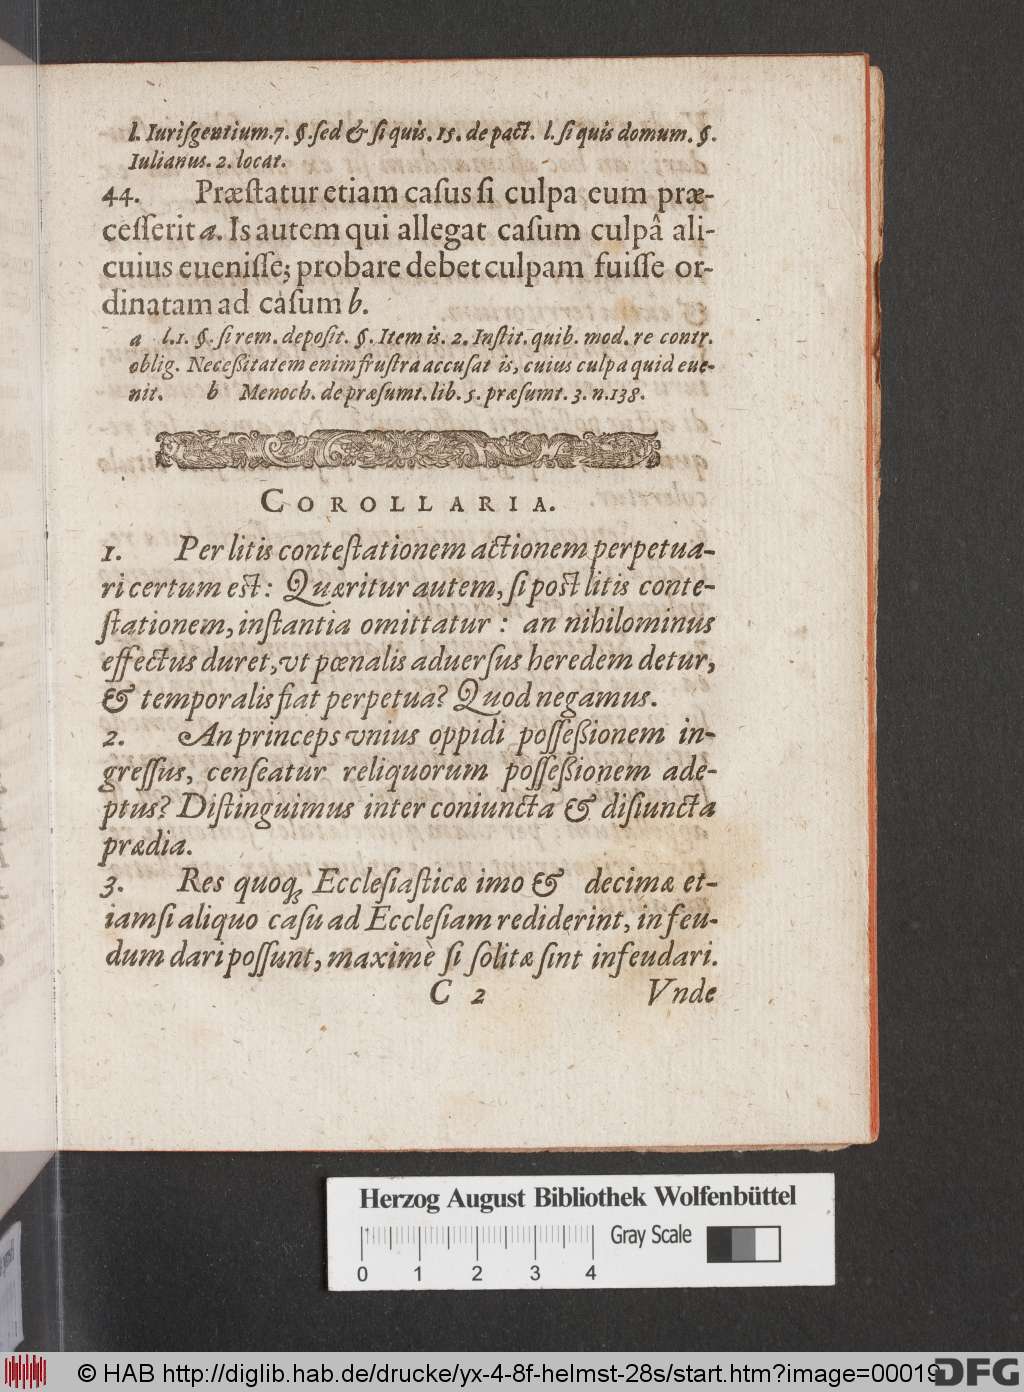 l. Iurisgentium. 7. §. sed & si quis. 15. de pact. l. si quis domum. §.
Iulianus. 2. locat.
44. Præstatur etiam casus si culpa eum præ-
cesserit a. Is autem qui allegat casum culpâ ali-
cuius euenisse; probare debet culpam fuisse or-
dinatam ad casum b.
a l. 1. §. si rem. deposit. §. Item is. 2. Instit. quib. mod. re contr.
oblig. Neceßitatem enim frustra accusat is, cuius culpa quid eue-
nit. b Menoch. de præsumt. lib. 5. præsumt. 3. n. 138.
COROLLARIA.
1. Per litis contestationem actionem perpetua-
ri certum est: Quæritur autem, si post litis conte-
stationem, instantia omittatur: an nihilominus
effectus duret, vt pœnalis aduersus heredem detur,
& temporalis fiat perpetua? Quod negamus.
2. An princeps vnius oppidi posseßionem in-
gressus, censeatur reliquorum posseßionem ade-
ptus? Distinguimus inter coniuncta & disiuncta
prædia.
3. Res quoq; Ecclesiasticæ imo & decimæ et-
iamsi aliquo casu ad Ecclesiam rediderint, in feu-
dum dari possunt, maximè si solitæ sint infeudari.
C 2 Vnde
Herzog August Bibliothek Wolfenbüttel
Gray Scale
0 1 2 3 4
© HAB http://diglib.hab.de/drucke/yx-4-8f-helmst-28s/start.htm?image=00019
DFG